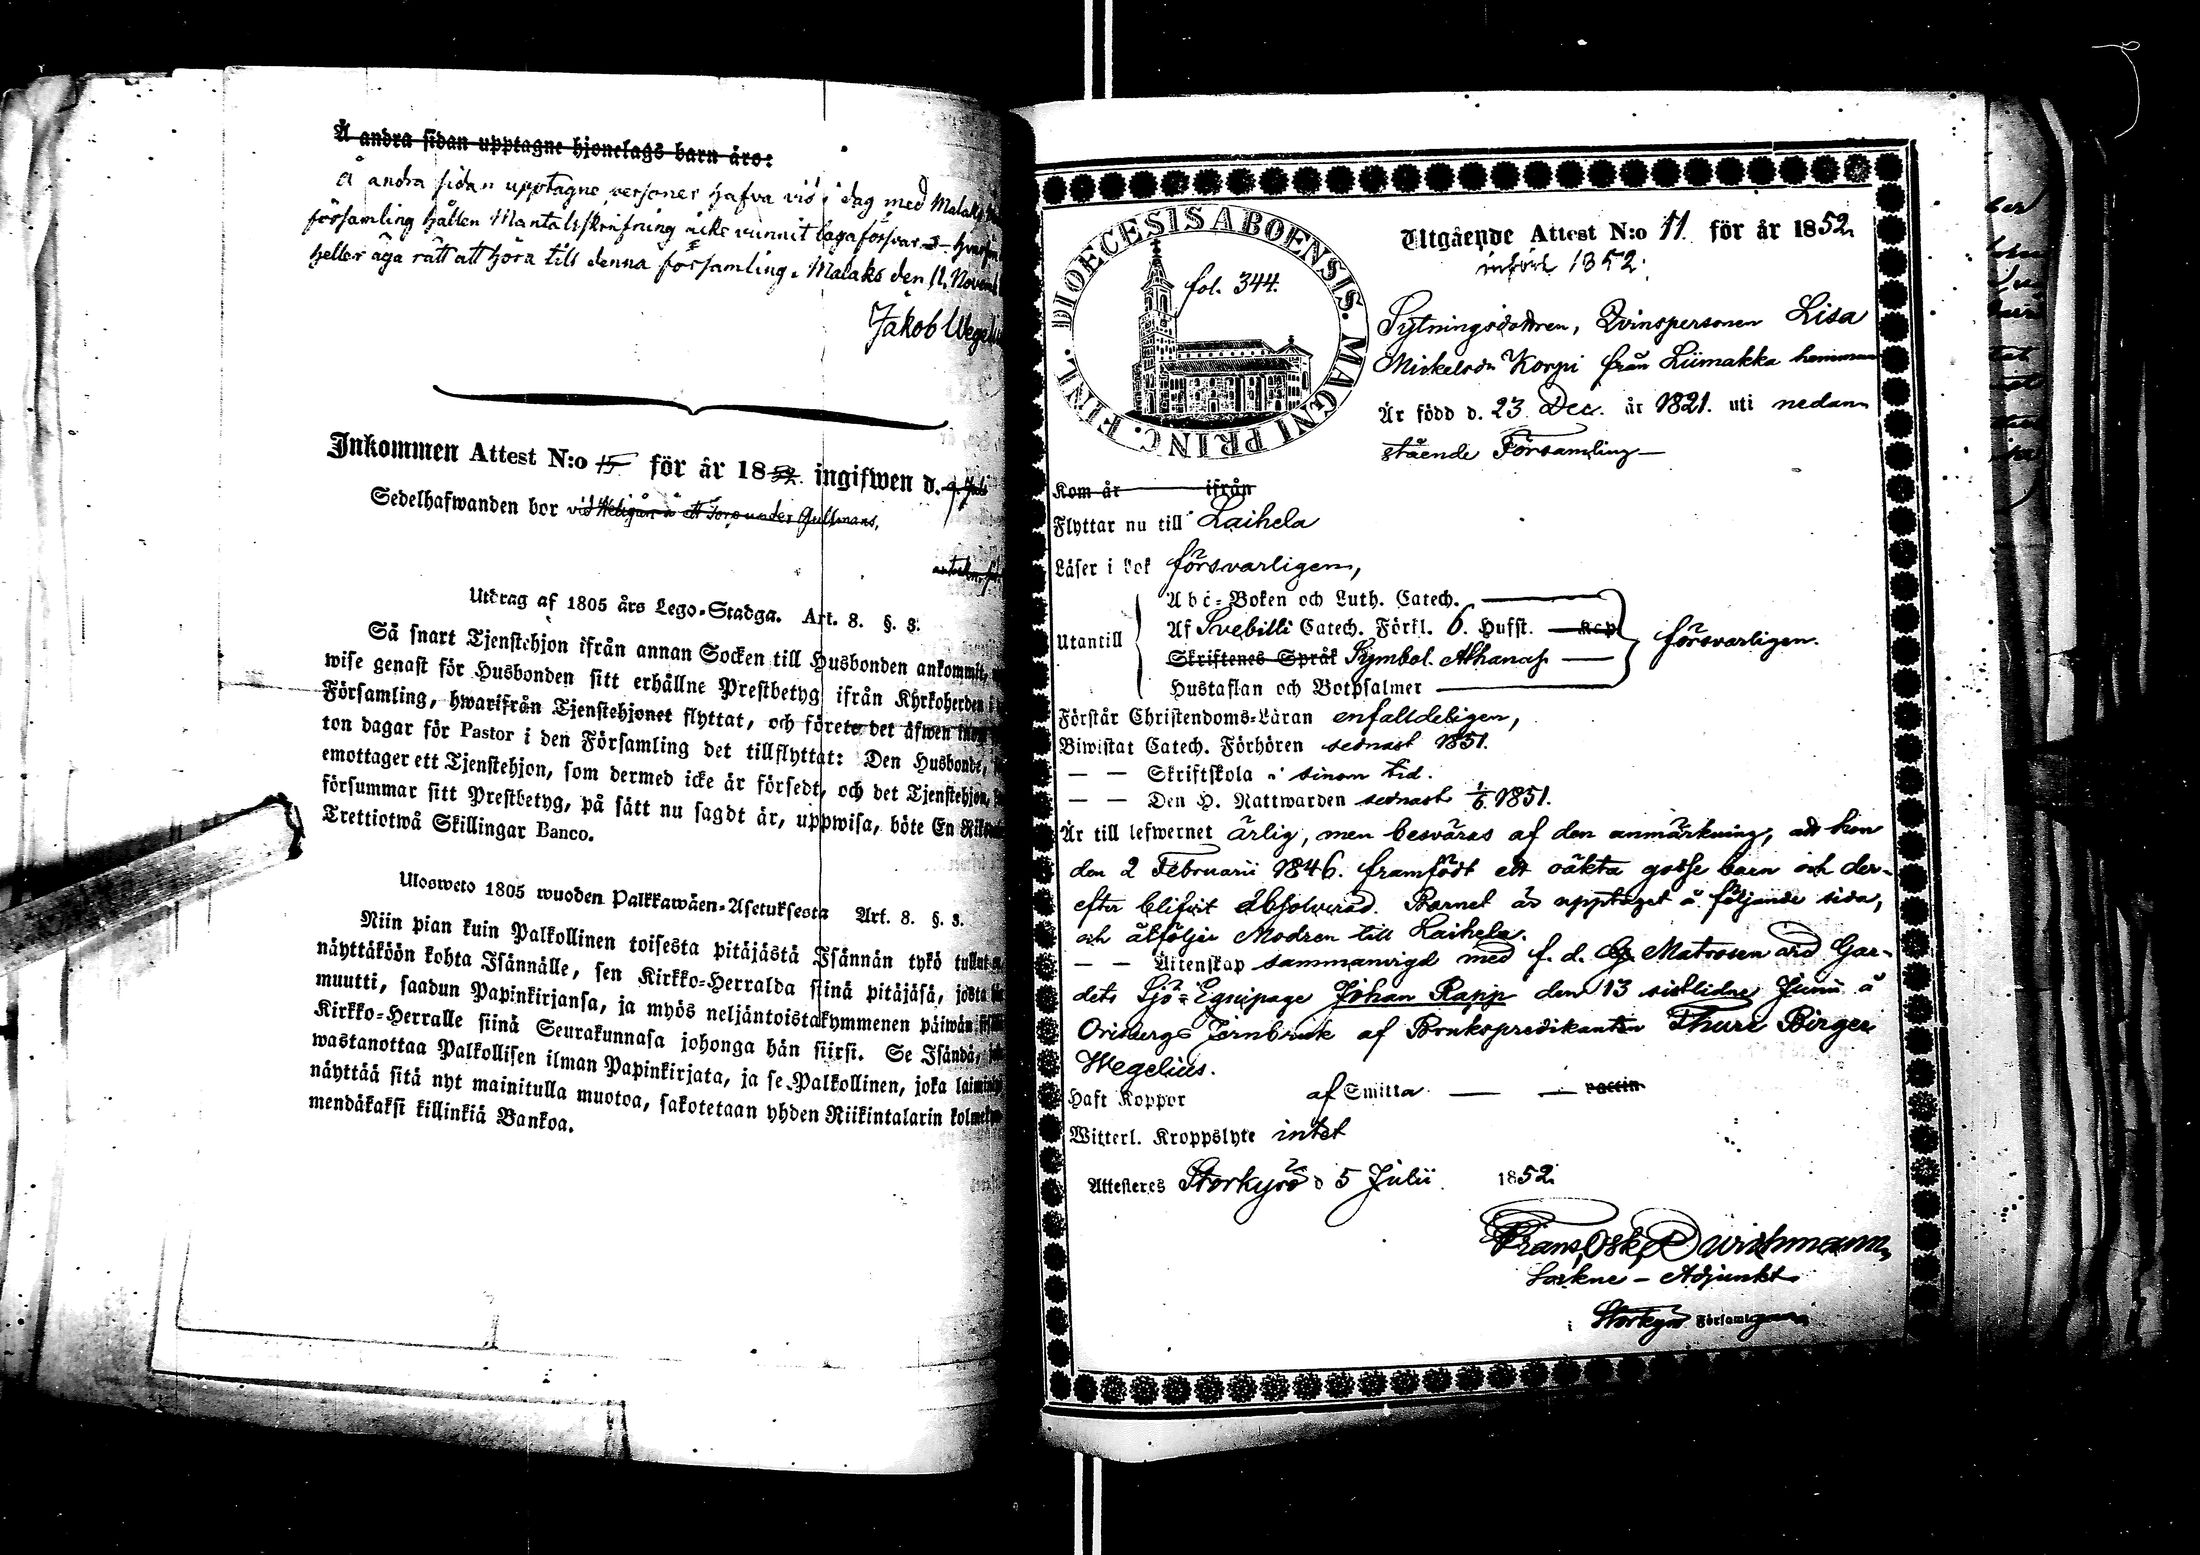 Å andra sidan upptagne hjonelags barn äro:
Å andra sidan upptagne personer hafva vid i dag med Malaks
församling hållen Mantalsskrifning icke vunnit laga försvar
heller äga rätt att höra till denna församling. Malaks den 11. Novemb
Jakob Wegeliu
Inkommen Attest N:o 15 för år 1852. ingifwen d. 9. Juli
Sedelhafwanden bor vid Heligån å ett Torp under Gullmans,
Utdrag af 1805 års Lego-Stadga. Art. 8. §. 3.
Så snart Tjenstehjon ifrån annan Socken till Husbonden ankommit,
wise genast för Husbonden sitt erhållne Prestbetyg ifrån Kyrkoherden i
Församling, hwarifrån Tjenstehjonet flyttat, och förete det äfwen inom
ton dagar för Pastor i den Församling det tillflyttat: Den Husbonde,
emottager ett Tjenstehjon, som dermed icke är försedt, och det Tjenstehjon,
försummar sitt Prestbetyg, på sätt nu sagdt är, uppwisa, böte En Riks
Trettiotwå Skillingar Banco.
Ulosweto 1805 wuoden Palkkawäen-Asetuksesta Art. 8. §. 3.
Niin pian kuin Palkollinen toisesta pitäjästä Isännän tykö tullut
näyttäköön kohta Isännälle, sen Kirkko-Herralda siinä pitäjäsä, josta
muutti, saadun Papinkirjansa, ja myös neljäntoistakymmenen päiwän
Kirkko-Herralle siinä Seurakunnasa johonga hän siirsi. Se Isändä,
wastanottaa Palkollisen ilman Papinkirjata, ja se Palkollinen, joka laimin
näyttää sitä nyt mainitulla muotoa, sakotetaan yhden Riikintalarin kolme
mendäkaksi killinkiä Bankoa.
DIOECESIS ABOENSIS. MAGNI PRINC. FINL.
fol. 344.
Utgående Attest N:o 11 för år 1852.
införd 1852.
Sytningsdottren, Qvinspersonen Lisa
Mickelsdr Korpi från Liimakka hemman
Är född d. 23 Dec. år 1821. uti nedan
stående Församling
Kom år ifrån
Flyttar nu till Laihela
Läser i bok försvarligen,
Abc-Boken och Luth. Catech.
Utantill Af Svebilii Catech. Förkl. 6. Hufst. Kap försvarligen.
Skriftenes Språk Symbol. Athanas.
Hustaflan och Botpsalmer
Förstår Christendoms-Läran enfaldeligen,
Biwistat Catech. Förhören sednast 1851.
— — Skriftskola i sinom tid.
— — Den H. Nattwarden sednast 1/6 1851.
Är till lefwernet ärlig, men besväras af den anmärkning, att hon
den 2 Februarii 1846. framfödt ett oäkta gosse barn och der-
efter blifvit absolverad. Barnet är upptaget å följande sida,
och åtföljer Modren till Laihela.
— — Äktenskap sammanvigd med f. d. Matrosen vid Gar-
dets Sjö-Equipage Johan Rapp den 13 sistlidne Junii å
Orisbergs Jernbruk af Brukspredikanten Thure Birger
Wegelius.
Haft Koppor af Smitta — — vaccin
Witterl. Kroppslyte intet
Attesteres Storkyrö d 5 Julii 1852.
Frans Osk. Durchmann,
Sockne-Adjunkt
i Storkyro Församl